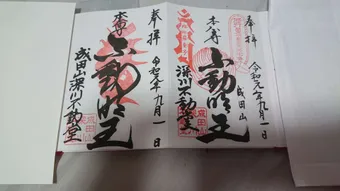 奉拝
令和元年九月一日
本尊
不動明王
成田山
深川不動堂
奉拝
令和元年九月一日
本尊
不動明王
成田山深川不動堂